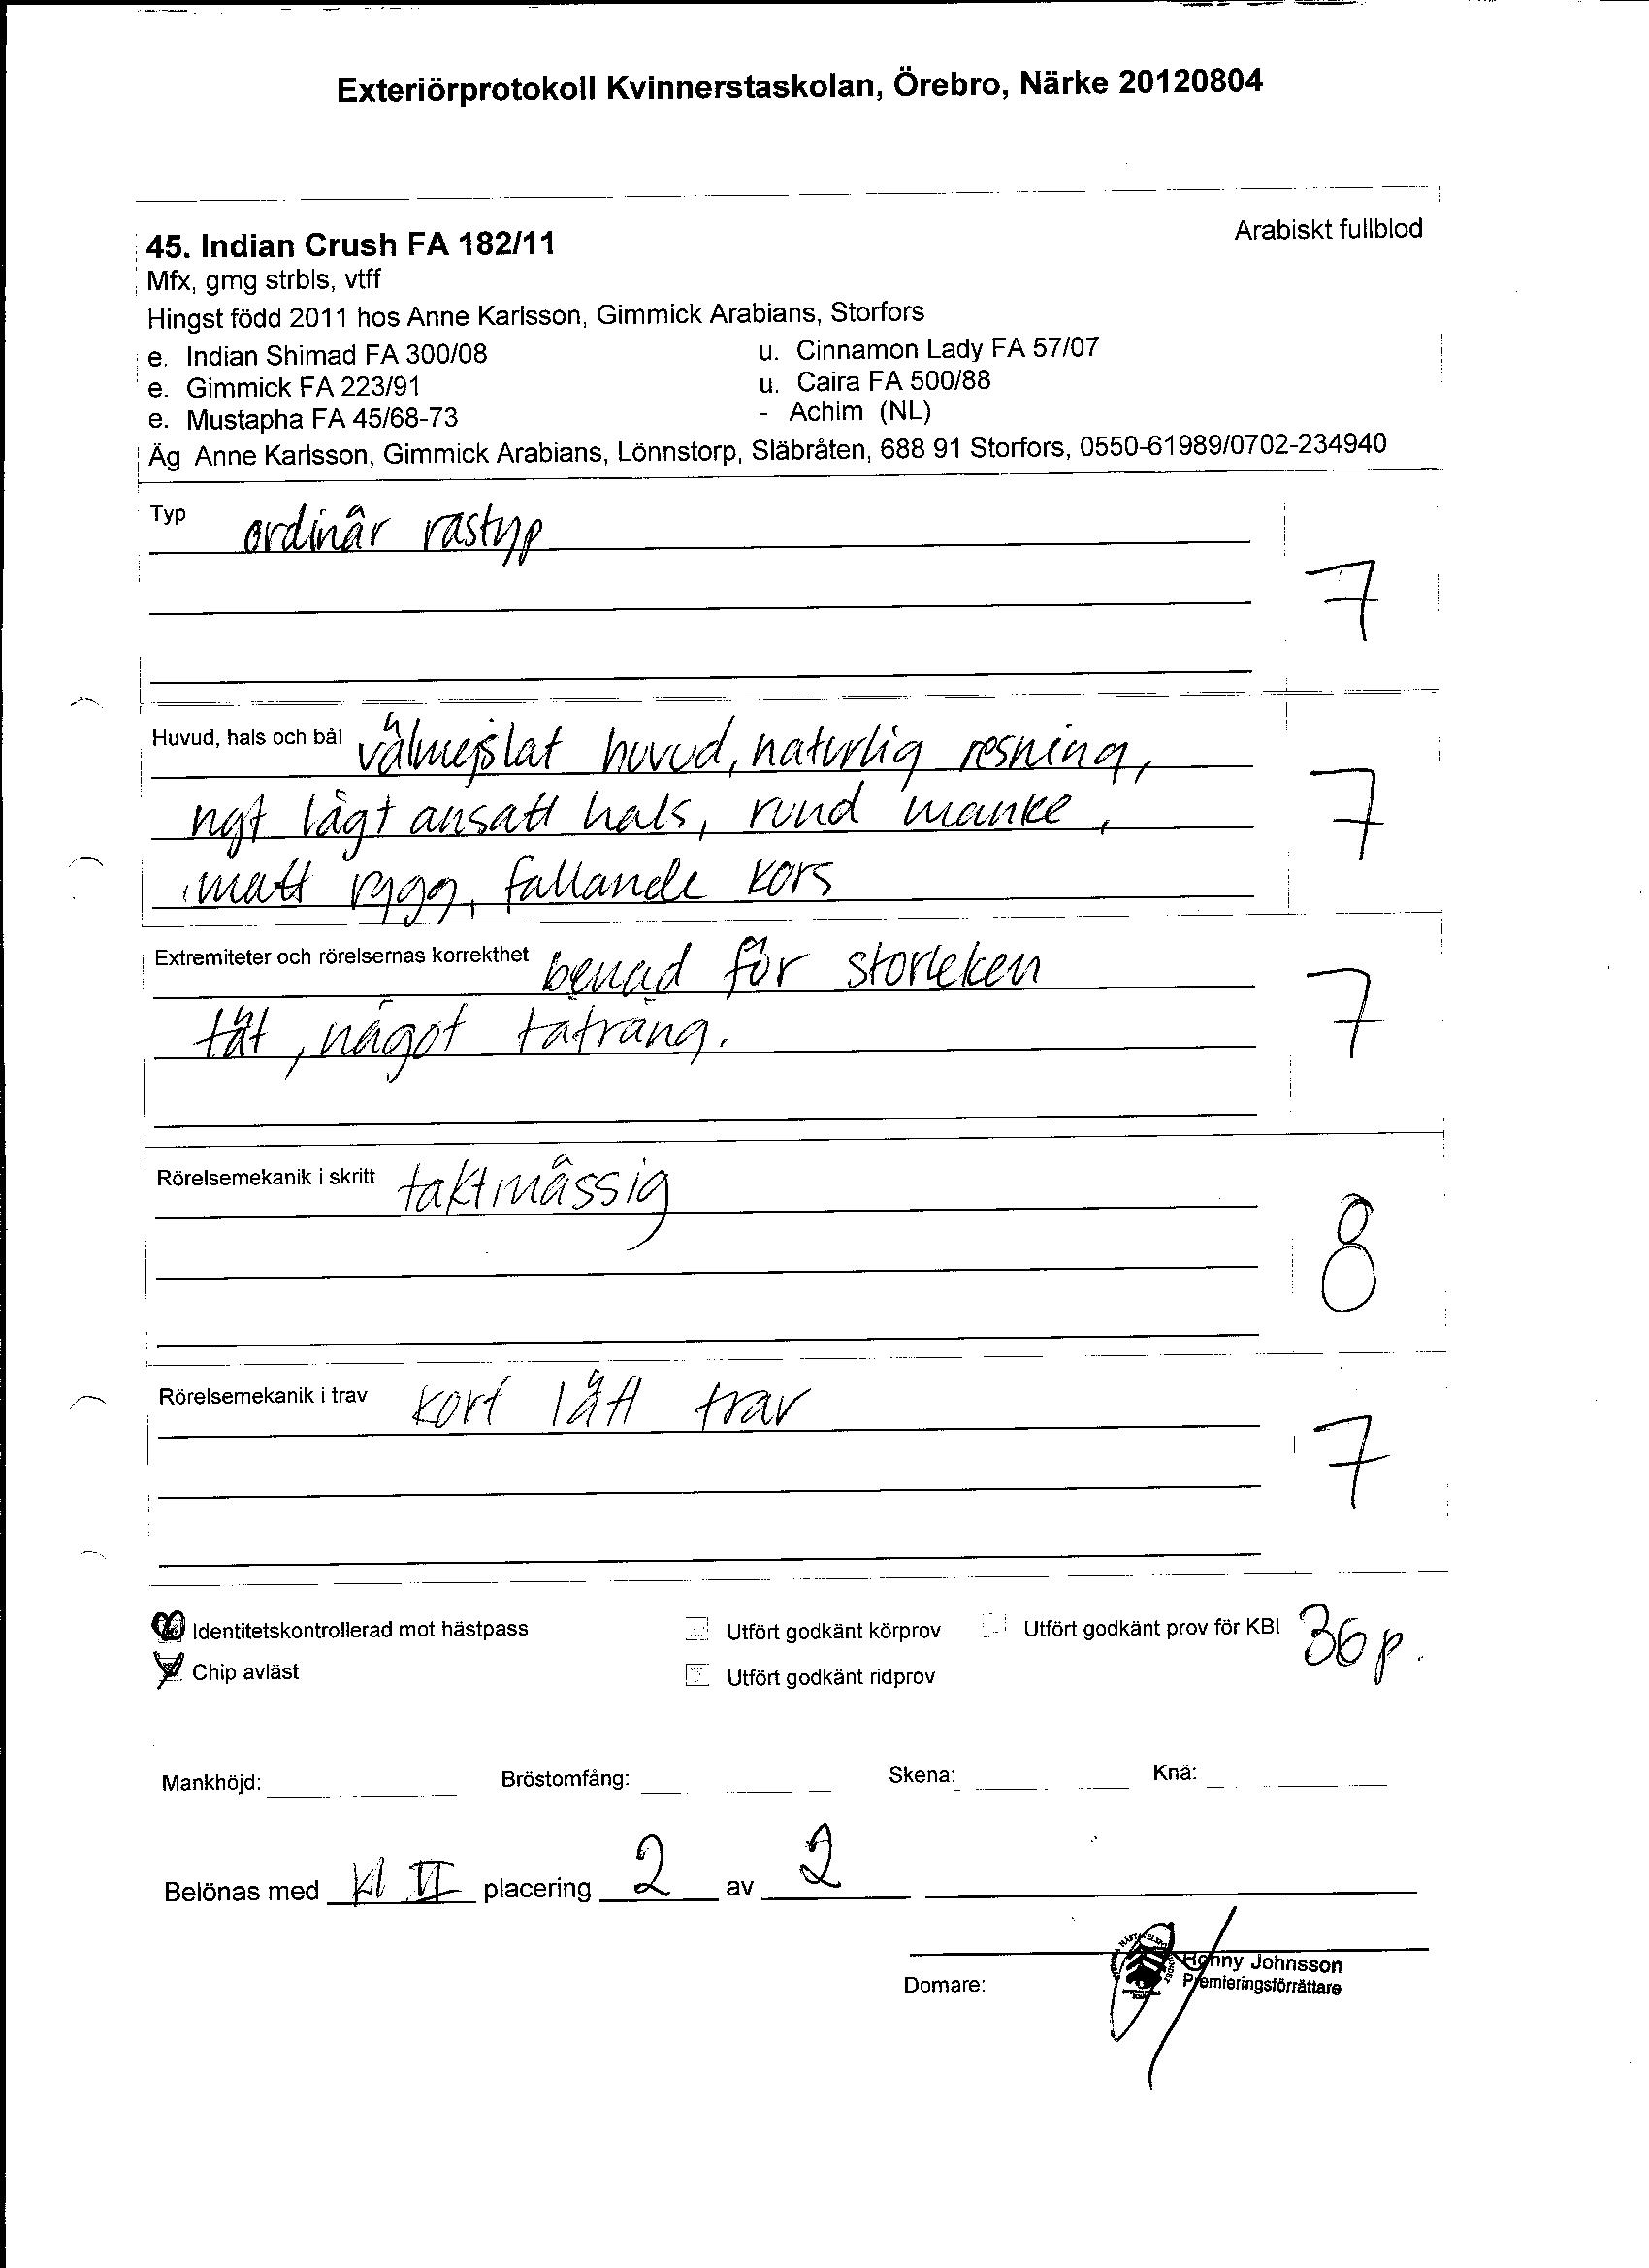 Exteriörprotokoll Kvinnerstaskolan, Örebro, Närke 20120804
45. Indian Crush FA 182/11
Arabiskt fullblod
Mfx, gmg strbls, vtff
Hingst född 2011 hos Anne Karlsson, Gimmick Arabians, Storfors
e. Indian Shimad FA 300/08 u. Cinnamon Lady FA 57/07
e. Gimmick FA 223/91 u. Caira FA 500/88
e. Mustapha FA 45/68-73 - Achim (NL)
Äg Anne Karlsson, Gimmick Arabians, Lönnstorp, Släbråten, 688 91 Storfors, 0550-61989/0702-234940
Typ ordinär rastyp
7
Huvud, hals och bål välmejslat huvud, naturlig resning,
ngt lågt ansatt hals, rund manke, 7
matt rygg, fallande kors
Extremiteter och rörelsernas korrekthet benad för storleken
tät, något tåtrång. 7
Rörelsemekanik i skritt taktmässig
8
Rörelsemekanik i trav kort lätt trav
7
Identitetskontrollerad mot hästpass Utfört godkänt körprov Utfört godkänt prov för KBI 36 p.
Chip avläst Utfört godkänt ridprov
Mankhöjd: Bröstomfång: Skena: Knä:
Belönas med kl II placering 2 av 2
Honny Johnsson
Domare: Premieringsförrättare